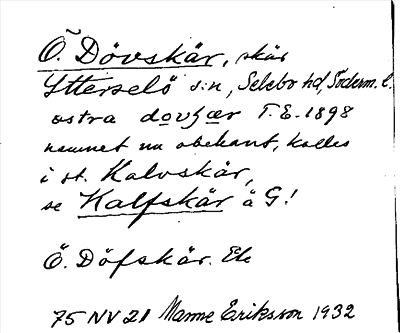 Ö. Dövskär, skär
Ytterselö s:n, Selebo hd, Söderm. l.
östra dovʃær T.E. 1898
namnet nu obekant, kallas
i st. Kalvskär,
se Kalfskär å G!
Ö. Döfskär. Ek
75 NV 21 Manne Eriksson 1932